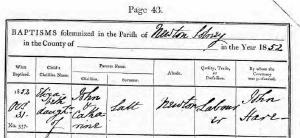 Page 43.
BAPTISMS solemnized in the Parish of Newton
in the County of in the Year 1852
When Baptized. Child's Christian Name. Parents Name. Abode. Quality, Trade, or Profession. By whom the Ceremony was performed.
Christian. Surname.
1852 Eliza- John Salt Newton Labour- John
Octr beth of er
31. daught
No. 337. of